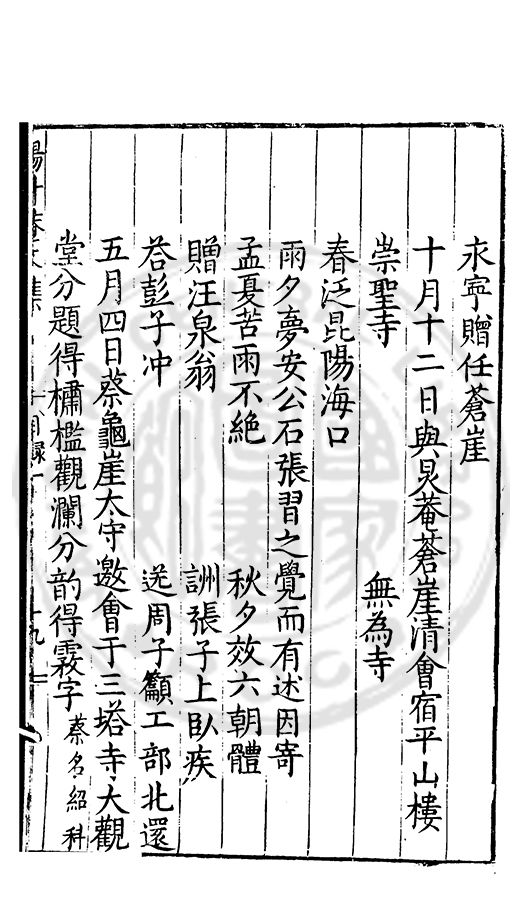 永寧贈任蒼崖
十月十二日與泉菴蒼崖清會宿平山樓
崇聖寺　無為寺
春泛昆陽海口
雨夕夢安公石張習之覺而有述因寄
孟夏苦雨不絶　秋夕效六朝體
贈汪泉翁　詶張子上臥疾
荅彭子冲　送周子籲工部北還
五月四日蔡龜崖太守邀會于三塔寺大觀
堂分題得櫹檻觀瀾分韵得霧字　蔡名紹科
目録一　十九